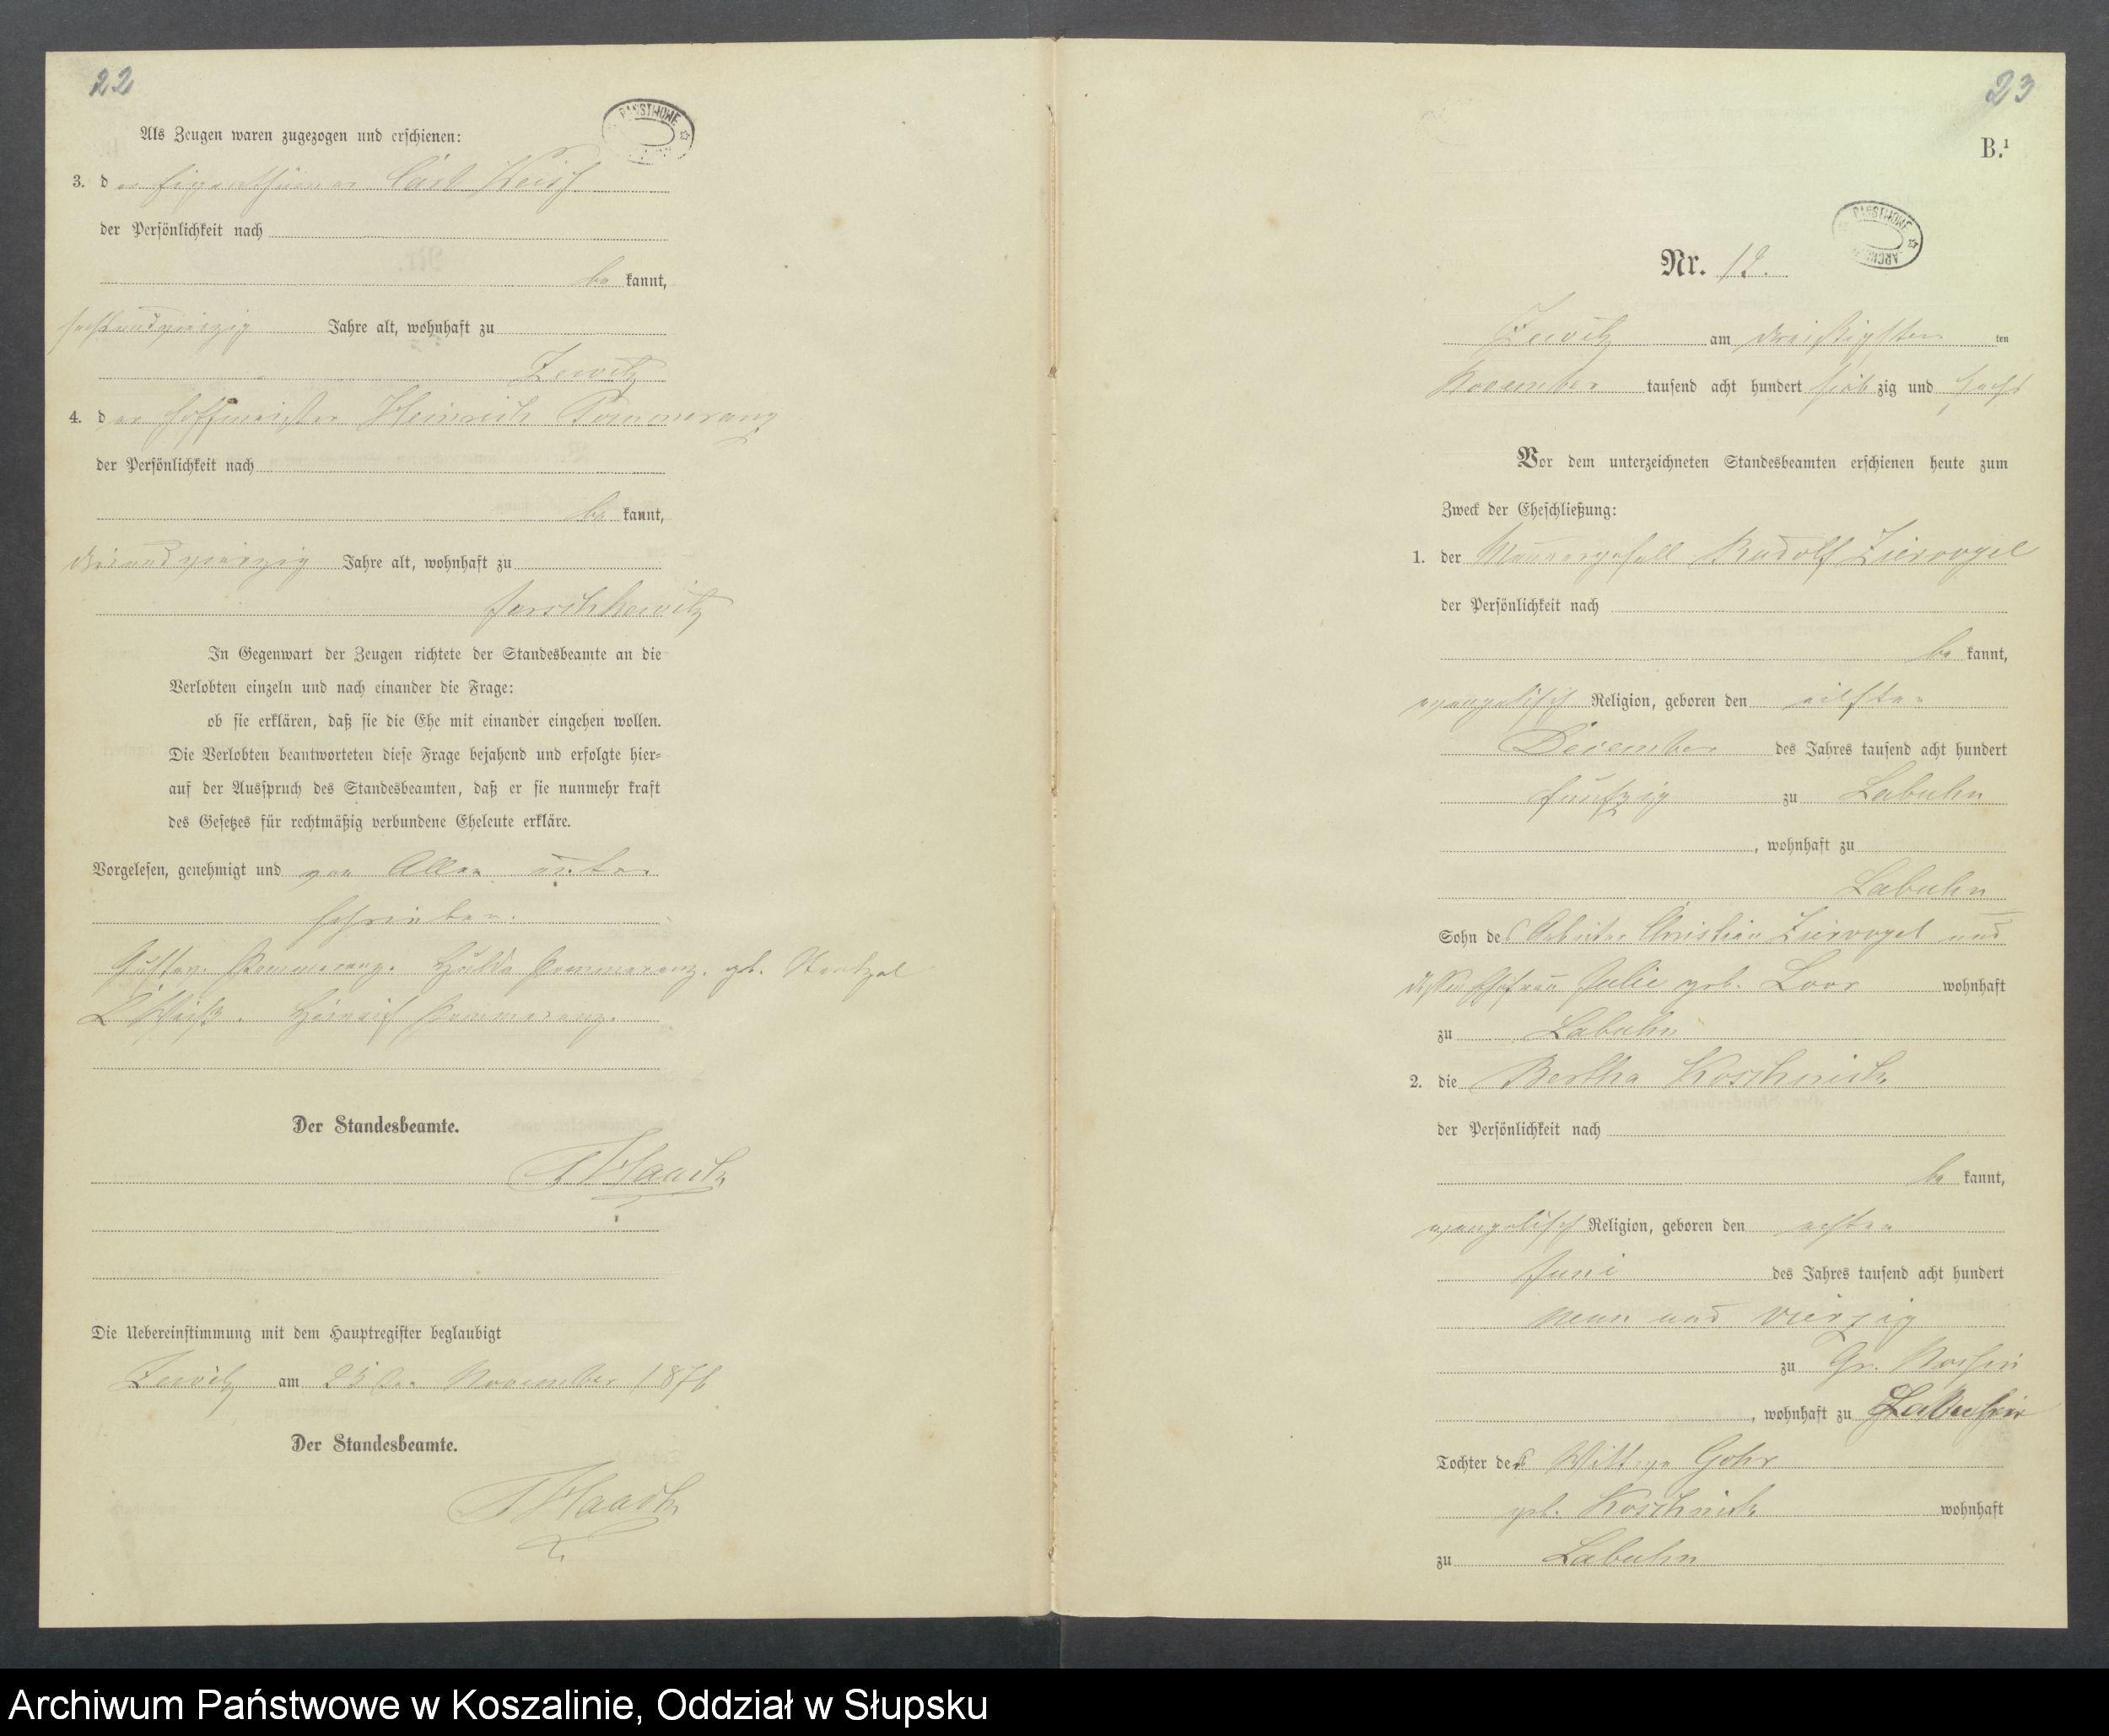 22
Als Zeugen waren zugezogen und erschienen:
PAŃSTWOWE
3. der Eigenthümer Carl
der Persönlichkeit nach
be kannt,
sechsundvierzig Jahre alt, wohnhaft zu
Zewitz
4. der Hoffmeister Heinrich Pommeranz
der Persönlichkeit nach
be kannt,
dreiundvierzig Jahre alt, wohnhaft zu
Jerschkewitz
In Gegenwart der Zeugen richtete der Standesbeamte an die
Verlobten einzeln und nach einander die Frage:
ob sie erklären, daß sie die Ehe mit einander eingehen wollen.
Die Verlobten beantworteten diese Frage bejahend und erfolgte hier-
auf der Ausspruch des Standesbeamten, daß er sie nunmehr kraft
des Gesetzes für rechtmäßig verbundene Eheleute erkläre.
Vorgelesen, genehmigt und von Allen unter
schrieben.
Gustav Pommeranz. Hulda Pommeranz. geb.
Heinrich Pommeranz.
Der Standesbeamte.
Haack
Die Uebereinstimmung mit dem Hauptregister beglaubigt
Zewitz am 25ten November 1876
Der Standesbeamte.
Haack
23
B.¹
PAŃSTWOWE
Nr. 12.
Zewitz am dreißigsten ten
November tausend acht hundert siebzig und sechs
Vor dem unterzeichneten Standesbeamten erschienen heute zum
Zweck der Eheschließung:
1. der Maurergesell Rudolf Ziervogel
der Persönlichkeit nach
be kannt,
evangelisch Religion, geboren den eilften
Dezember des Jahres tausend acht hundert
funfzig zu Labuhn
, wohnhaft zu
Labuhn
Sohn des Arbeiter Christian Ziervogel und
dessen Ehefrau Julie geb. Loor wohnhaft
zu Labuhn
2. die Bertha Koschnick
der Persönlichkeit nach
be kannt,
evangelisch Religion, geboren den achten
Juni des Jahres tausend acht hundert
neun und vierzig
zu Gr.
, wohnhaft zu Labuhn
Tochter der Wittwe Gohr
geb. Koschnick wohnhaft
zu Labuhn
Archiwum Państwowe w Koszalinie, Oddział w Słupsku